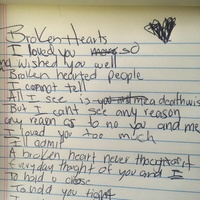 Broken Hearts
I loved you so
nd wished you well
Broken hearted people
I cannot tell
All I see is a deathwis
But I can't see any reason
any reason as to no you and me
I loved you too much
I'll admit
A broken heart never
Everyday thought of you and I
To hold a
To hold you tight